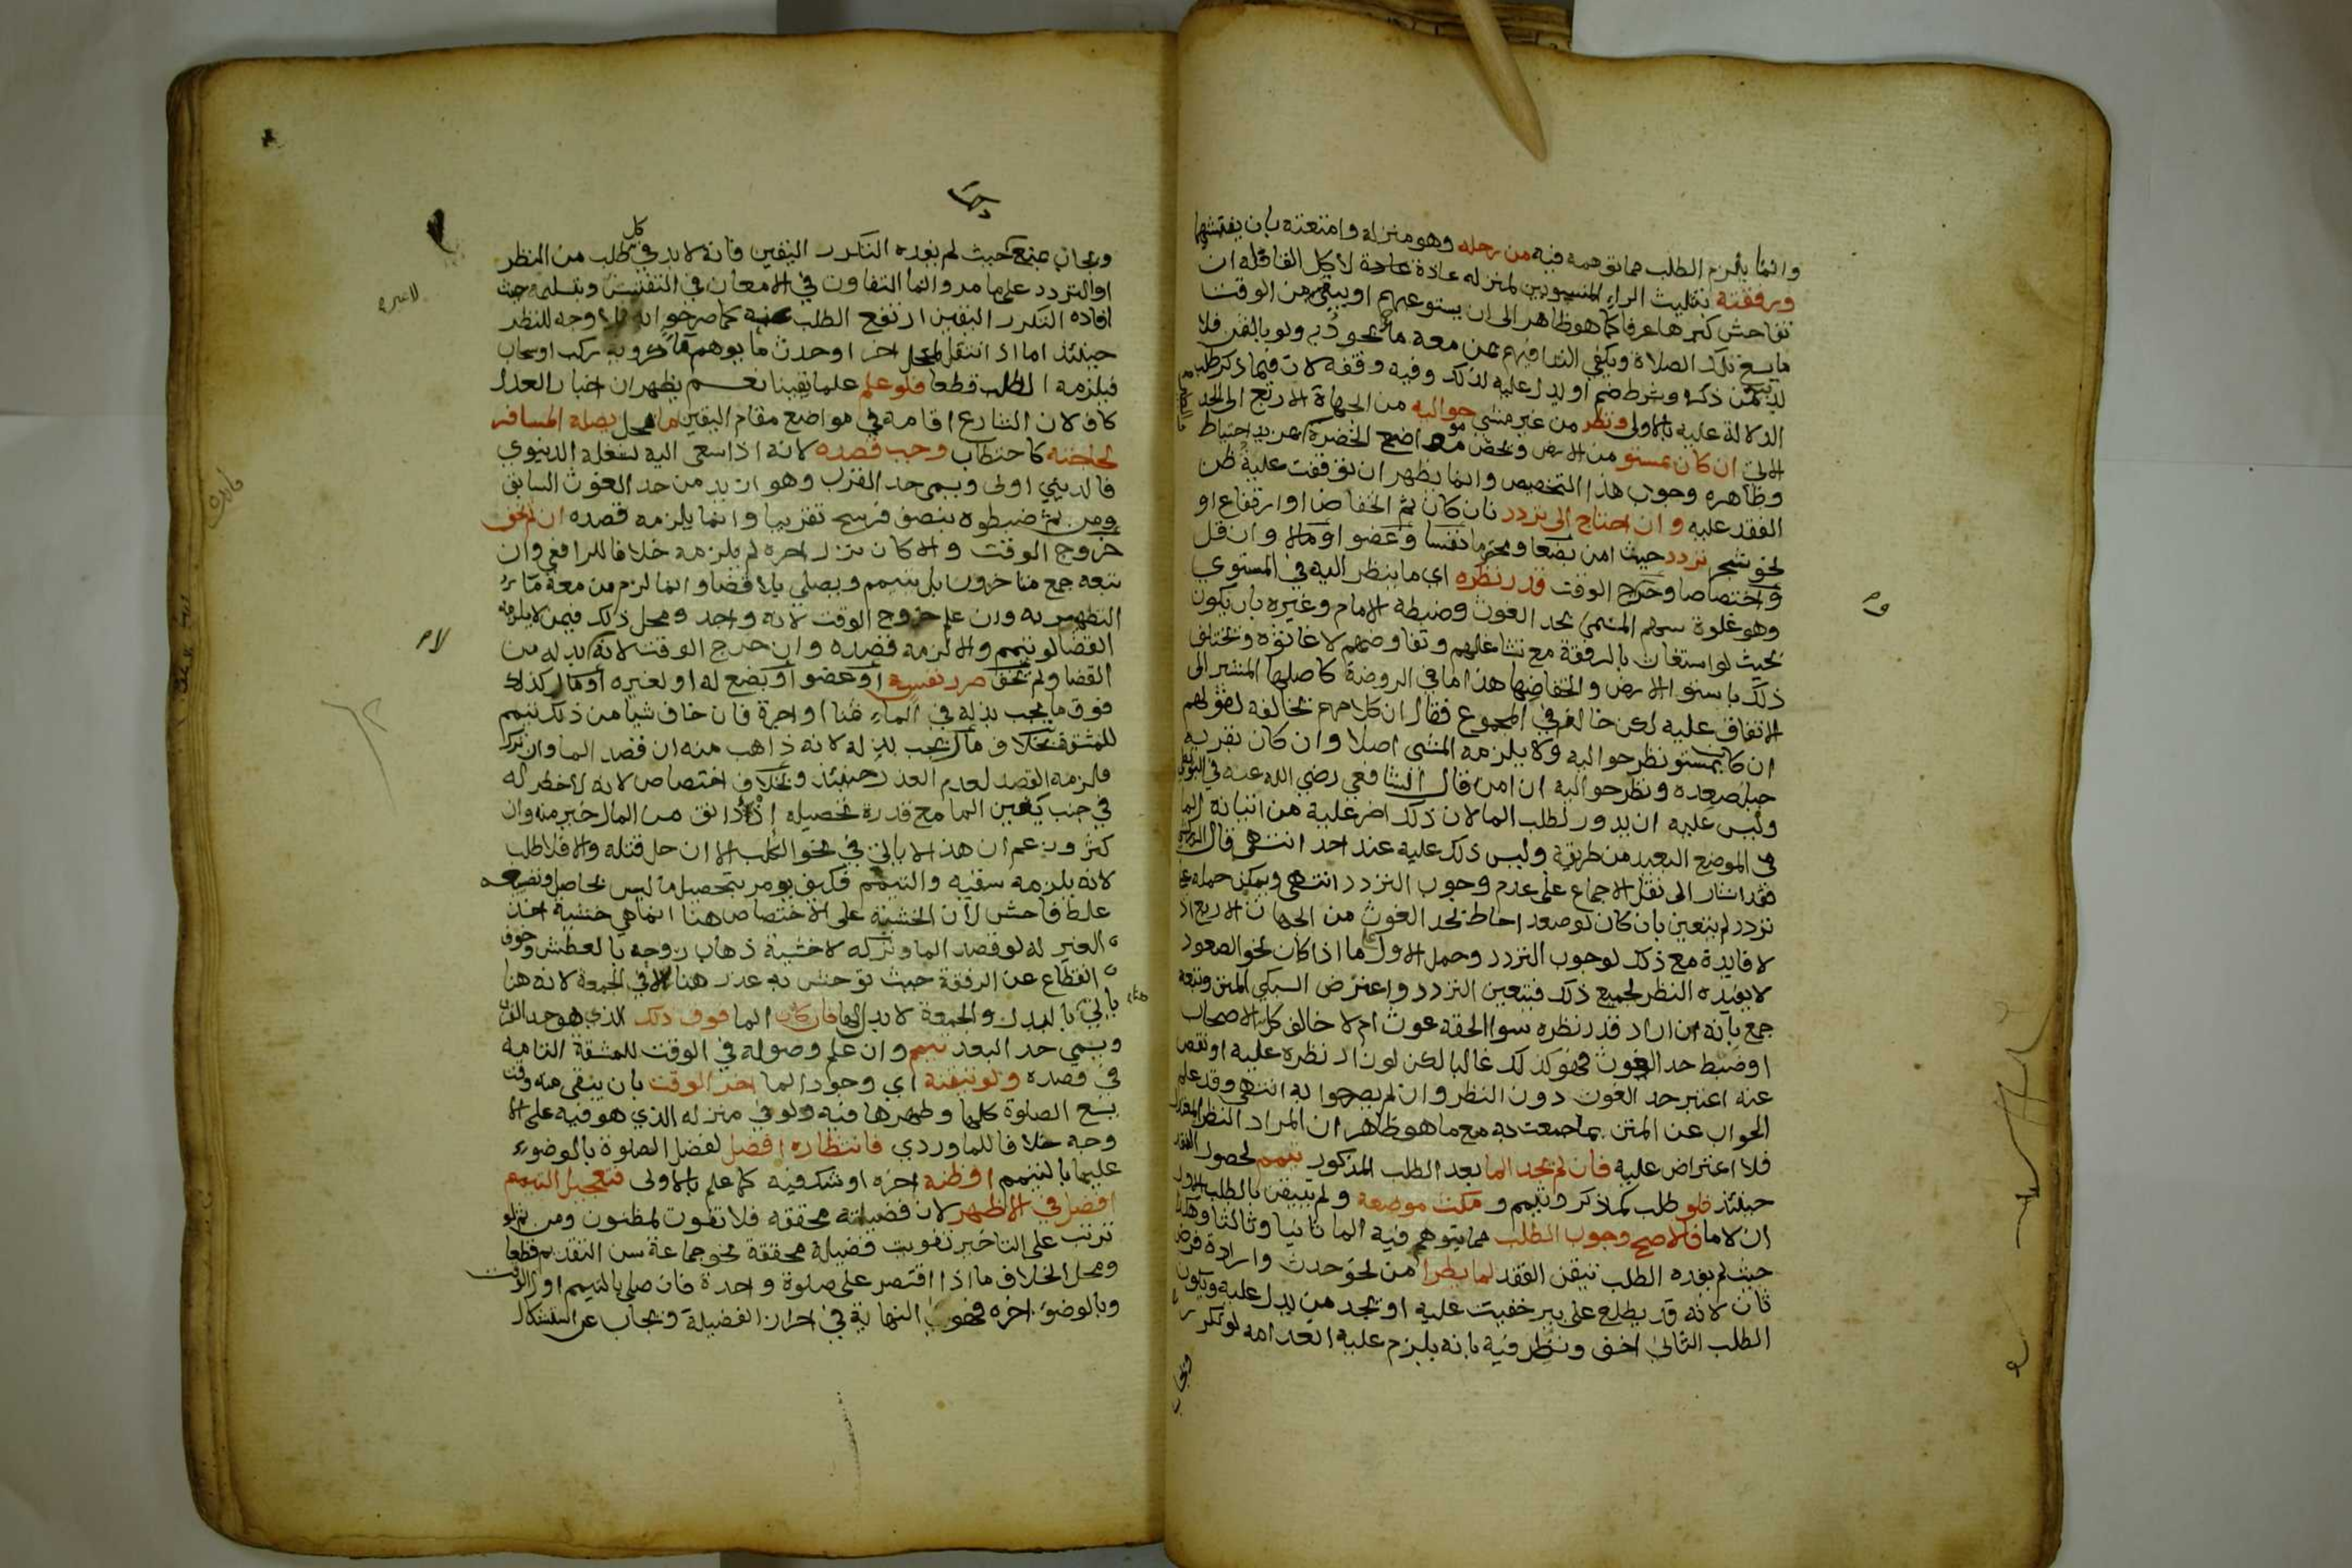 وانما يلزم الطلب مما توهمه فيه من رحله وهو منزله وامتعته بان يفتشها
ورفقته بتثليث الراء المنسوبين لمنزله عادة لا كل القافلة ان
تفاحش كبرها عرفا كما هو ظاهر الى ان يستوعبهم او يبقى من الوقت
ما يسع تلك الصلاة ويكفي النداء فيهم عن معه ماء يجود به ولو بالثمن فلا
بد من ذكره وشرط ضم او يدل عليه لذلك وفيه وقفة لان فيما ذكر طلب
الدلالة عليه بالاولى ونظر من غير مشي حواليه من الجهات الاربع الى الحد
الاتي ان كان بمستو من الارض ويخص مواضع الخضرة بمزيد احتياط
وظاهره وجوب هذا التخصيص وانما يظهر ان توقفت عليه ظن
الفقد عليه وان احتاج الى تردد بان كان ثم انخفاض او ارتفاع او
نحو شجر تردد حيث امن بضعا ومحترما نفسا وعضوا ومالا وان قل
واختصاصا وخروج الوقت قدر نظره اي ما ينظر اليه في المستوي
وهو غلوة سهم المسمى بحد الغوث وضبطه الامام وغيره بان يكون
بحيث لو استغاث بالرفقة مع تشاغلهم وتفاوضهم لاغاثوه ويختلف
ذلك باستواء الارض وانخفاضها هذا ما في الروضة كاصلها المشير الى
الاتفاق عليه لكن خالفه في المجموع فقال ان كلامهم يخالفه لقولهم
ان كان بمستو نظر حواليه ولا يلزمه المشي اصلا وان كان بقربه
جبل صعده ونظر حواليه ان امن قال الشافعي رضي الله عنه في البويطي
وليس عليه ان يدور لطلب الما لان ذلك اضر عليه من اتيانه الما
في الموضع البعيد من طريقه وليس ذلك عليه عند احد انتهى قال الزركشي
فقد اشار الى نقل الاجماع على عدم وجوب التردد انتهى ويمكن حمله على
تردد لم يتعين بان كان لو صعد احاط بحد الغوث من الجهات الاربع اذ
لا فايدة مع ذلك لوجوب التردد وحمل الاول على ما اذا كان نحو الصعود
لا يفيده النظر لجميع ذلك فيتعين التردد واعترض السبكي المتن وتبعه
جمع بانه ان اراد قدر نظره سوا الحقه غوث ام لا خالف كل الاصحاب
او ضبط حد الغوث فهو كذلك غالبا لكن لو زاد نظره عليه او نقص
عنه اعتبر حد الغوث دون النظر وان لم يصرحوا به انتهى وقد علم
الجواب عن المتن بما ضبعت به مع ما هو ظاهر ان المراد النظر المعتدل
فلا اعتراض عليه فان لم يجد الما بعد الطلب المذكور تيمم لحصول الفقد
حينئذ فلو طلب كما ذكر وتيمم و مكث موضعه ولم يتيقن بالطلب الاول
ان لا ما فالاصح وجوب الطلب مما يتوهم فيه الما ثانيا وثالثا وهكذا
حيث لم يفده الطلب تيقن الفقد لما يطرا من نحو حدث وارادة فرض
ثان لانه قد يطلع على بير خفيت عليه او يجد من يدل عليه ويكون
الطلب الثاني اخف ونظر فيه بانه يلزم عليه انعدامه لو تكرر
ويجاب
ويجاب بمنع حيث لم يفده التكرر اليقين فانه لا بد في كل طلب من النظر
او التردد على ما مر وانما التفاوت في الامعان في التفتيش وتقليله حيث
افاده التكرر اليقين ارتفع الطلب وجه للنظر
حينئذ اما اذ انتقل لمحل اخر او حدث ما يوهم ماء كروية ركب او سحاب
فيلزمه الطلب قطعا فلو علم علما يقينا نعم يظهر ان اخبار العدل
كاف لان الشارع اقامه في مواضع مقام اليقين ما بمحل يصله المسافر
لحاجته كاحتطاب وجب قصده لانه اذا سعى اليه لشغله الدنيوي
فالديني اولى ويسمى حد القرب وهو ازيد من حد الغوث السابق
ومن ثم ضبطوه بنصف فرسخ تقريبا وانما يلزمه قصده ان لم يخف
خروج الوقت والا كان نزل اخره لم يلزمه خلافا للرافعي وان
تبعه جمع متاخرون بل يتيمم ويصلي بلا قضا وانما لزم من معه ما
التطهر به وان علم خروج الوقت لانه واجد ومحل ذلك فيمن لا يلزمه
القضا لو تيمم والا لزمه قصده وان خرج الوقت لانه لا بد له من
القضا ولم يخف ضرر نفسه او عضو او بضع له او لغيره او مال كذلك
فوق ما يجب بذله في الماء ثمنا او اجرة فان خاف شيا من ذلك تيمم
للمشقة بخلاف مال يجب بذله لانه ذاهب منه ان قصد الما وان ترك
فلزمه القصد لعدم العذر حينئذ وبخلاف اختصاص لانه لا خطر له
في جنب يقين الما مع قدرة تحصيله اذ دانق من المال خير منه وان
كثر وزعم ان هذا لا ياتي في نحو الكلب الا ان حل قتله والا فلا طلب
لانه يلزمه سقيه والتيمم فكيف يومر بتحصيل ما ليس بحاصل وتضييعه
غلط فاحش لان الخشية على الاختصاص هنا انما هي خشية اخذ
الغير له لو قصد الما وتركه لا خشية ذهاب روحه بالعطش وخوف
انقطاع عن الرفقة حيث توحش به عذر هنا لا في الجمعة لانه هنا
ياتي بالبدل والجمعة لا بدل لها فان كان الما فوق ذلك الذي هو حد القرب
ويسمى حد البعد تيمم وان علم وصوله في الوقت للمشقة التامة
في قصده ولو تيقنه اي وجود الما اخر الوقت بان يبقى منه وقت
يسع الصلوة كلها وطهرها فيه ولو في منزله الذي هو فيه على الا
وجه خلافا للماوردي فانتظاره افضل لفضل الصلوة بالوضوء
عليها بالتيمم او ظنه اخره او شك فيه كما علم بالاولى فتعجيل التيمم
افضل في الاظهر لان فضيلته محققه فلا تفوت لمظنون ومن ثم لو
ترتب على التاخير تفويت فضيلة محققة نحو جماعة سن التقديم قطعا
ومحل الخلاف ما اذا اقتصر على صلوة واحدة فان صلى بالتيمم اول الوقت
وبالوضوء اخره فهو النهاية في احراز الفضيلة ويجاب عن استشكال
فايدة